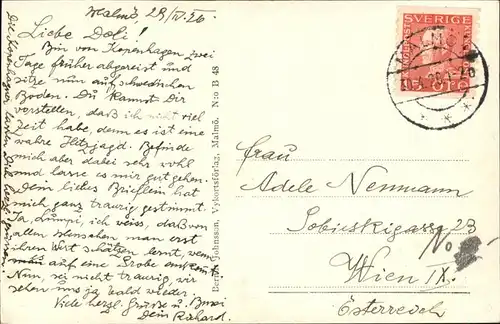 Malmö, 29/IV. 26.
Liebe Doli!
Bin von Kopenhagen zwei
Tage früher abgereist und
sitze nun auf schwedischen
Boden. Du kannst Dir
vorstellen, daß ich nicht viel
Zeit habe, denn es ist eine
wahre Hitzjagd. Befinde
mich aber dabei sehr wohl
und lasse es mir gut gehen.
Dein liebes Brieflein hat
mich ganz traurig gestimmt.
Ja, ich weiss, daß von
allen Menschen man erst
ihren Wert schätzen lernt, wenn
man auf eine Probe
Nun, sei nicht traurig, wir
sehen uns ja bald wieder.
Viele herzl. Grüße u. Bussi
Dein Richard.
Die Kopenhagner lassen Dich herzl. grüssen
Johnsson, Vykortsförlag, Malmö. N:o B 48
SVERIGE
Frau
Adele Neumann
Sobieskigasse 23
Wien IX.
Österreich